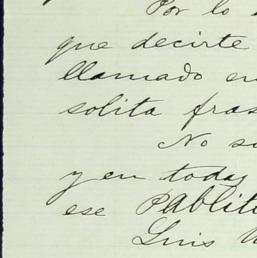 Por lo
que decirte
llamado en
solita fras
No s
y en today
ese Pablit
Luis